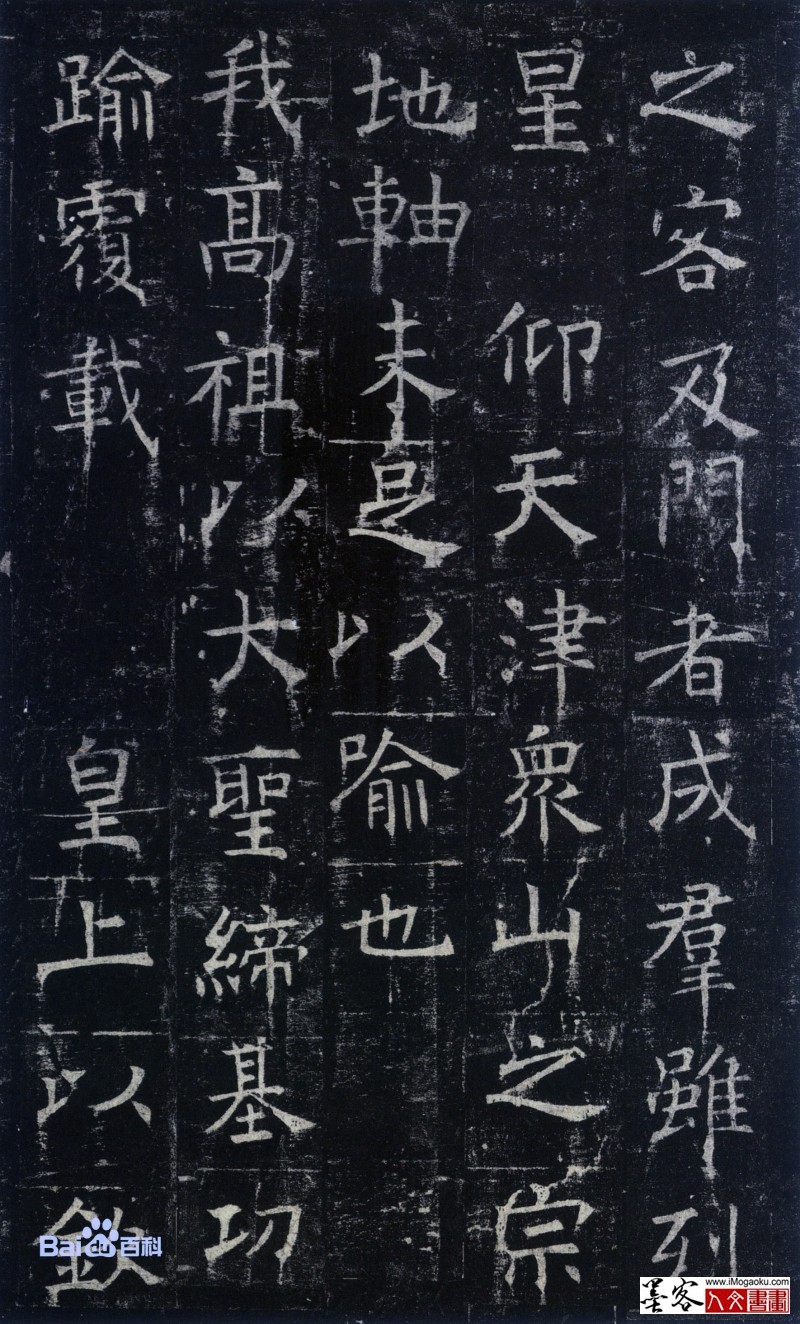 之客及門者成羣雖列
星 仰天津衆山之宗
地軸未足以喻也
我高祖以大聖締基功
踰覆載 皇上以欽
Bai百科
www.iMogaoku.com
墨客人文書畫